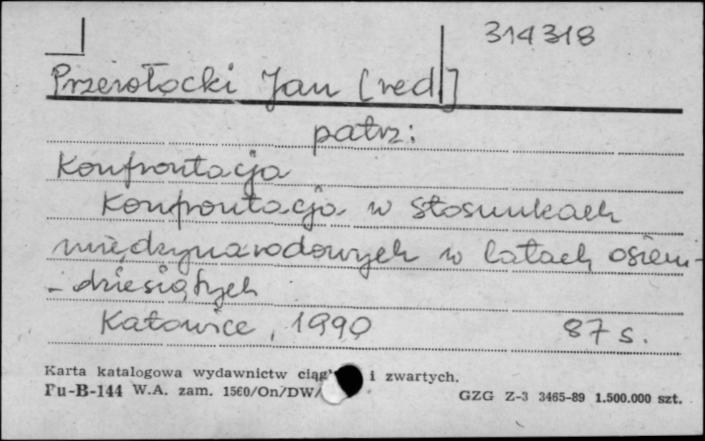 314318
Przewłocki Jan [red.]
patrz:
Konfrontacja
Konfrontacja w stosunkach
międzynarodowych w latach osiem-
- dziesiątych
Katowice, 1990 87 s.
Karta katalogowa wydawnictw i zwartych.
Pu-B-144 W.A. zam. 1560/On/DW/ GZG Z-3 3465-89 1.500.000 szt.